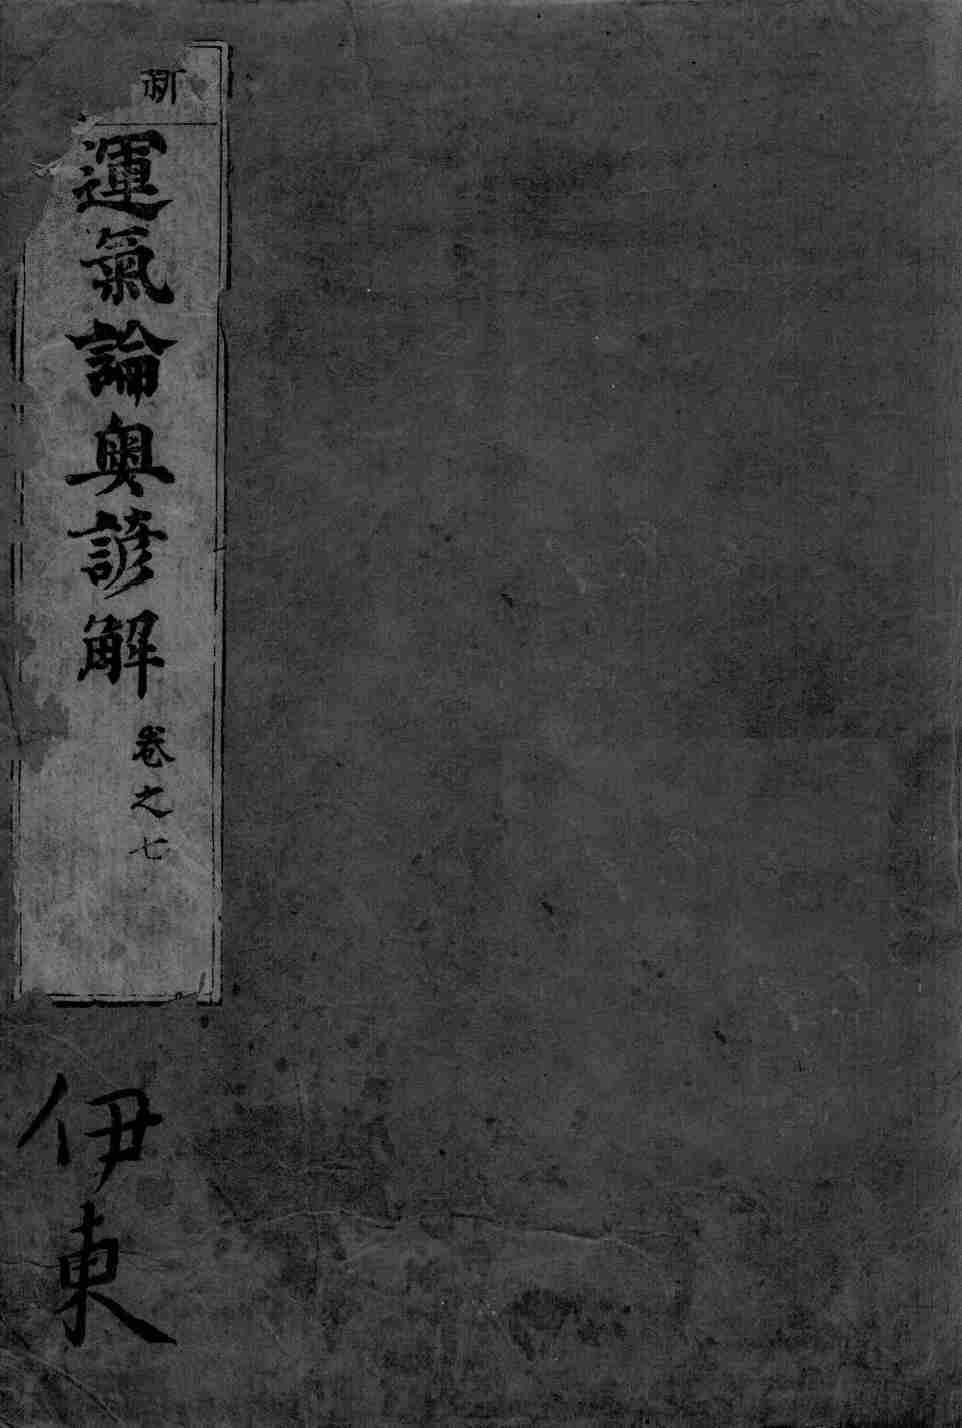 新
運氣論奥諺解
卷之七
伊東